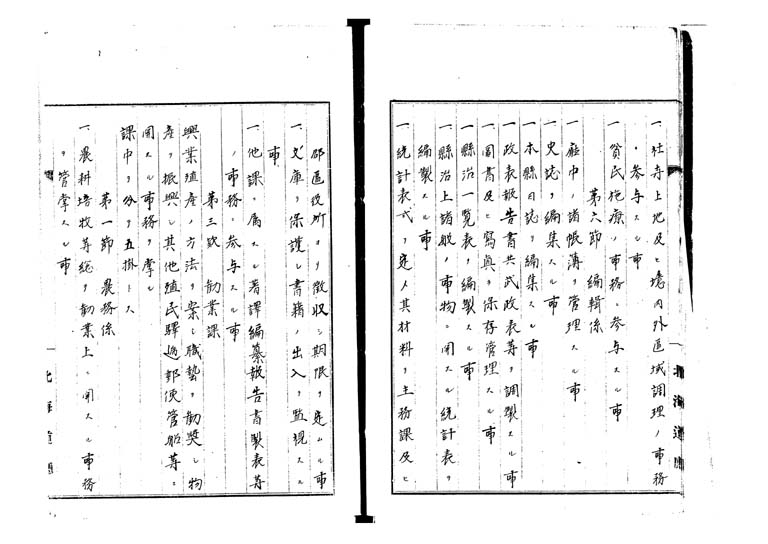 一社寺上地及ヒ境内外区域調理ノ事務
ニ参与スル事
一貧民施療ノ事務ニ参与スル事
第六節 編輯係
一庁中ノ諸帳簿ヲ管理スル事
一史誌ヲ編集スル事
一本県日誌ヲ編集スル事
一政表報告書共武政表等ヲ調製スル事
一図書及ヒ写真ヲ保存管理スル事
一県治一覧表ヲ編製スル事
一県治上諸般ノ事物ニ関スル統計表ヲ
編製スル事
一統計表式ヲ定メ其材料ヲ主務課及ヒ
郡区役所ヨリ徴収シ期限ヲ定ムル事
一文庫ヲ保護シ書籍ノ出入ヲ監視スル
事
一他課ニ属スル著訳編纂報告書製表等
ノ事務ニ参与スル事
第三款 勧業課
興業殖産ノ方法ヲ案シ職藝ヲ勧奨シ物
産ヲ振興シ其他殖民驛逓郵便管船等ニ
関スル事務ヲ掌ル
課中ヲ分ヲ五掛トス
第一節 農務係
一農耕培牧等総テ勧業上ニ関スル事務
ヲ管掌スル事
北海道庁